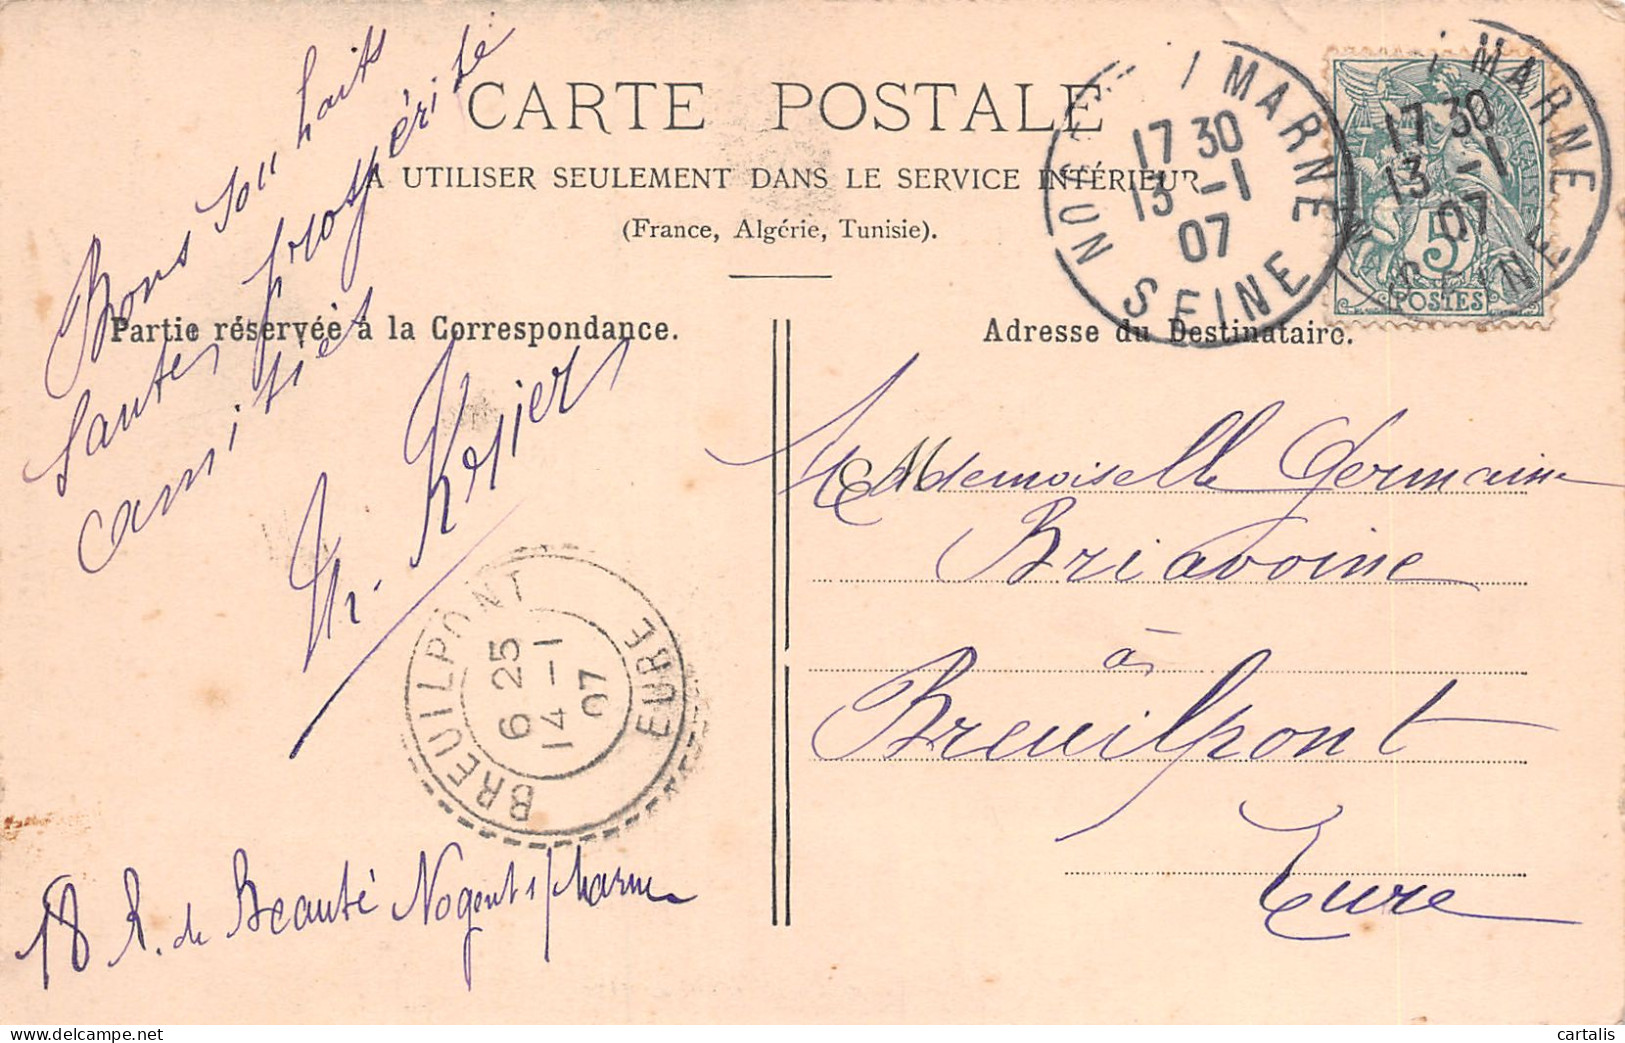 CARTE POSTALE
A UTILISER SEULEMENT DANS LE SERVICE INTÉRIEUR
(France, Algérie, Tunisie).
Partie réservée à la Correspondance.
Adresse du Destinataire.
Bons Souhaits
Santé, prospérité
amitiés
18 R. de Beauté Nogent s/ Marne
Mademoiselle Germaine
Briavoine
à
Breuilpont
Eure
MARNE
17 30
13 -1
07
SEINE
MARNE
17 30
13 -1
07
SEINE
5
POSTES
BREUILPONT
6 25
14 -1
07
EURE
cartalis